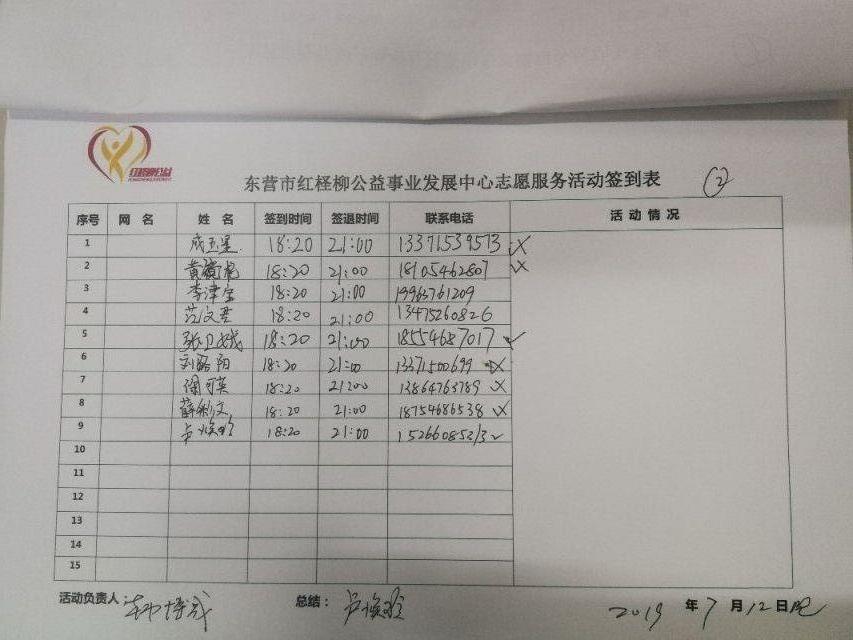 红柽柳公益
东营市红柽柳公益事业发展中心志愿服务活动签到表 ②
序号 网 名 姓 名 签到时间 签退时间 联系电话 活动情况
1 成玉星 18:20 21:00 13371539573
2 黄 18:20 21:00 18105462807
3 李津宝 18:20 21:00 19963761209
4 范文君 18:20 21:00 13475260826
5 张卫娥 18:20 21:00 18554687017 ✓
6 刘路阳 18:20 21:00 13371500699
7 18:20 21:00 13864763789
8 薛彩文 18:20 21:00 18754686538
9 卢焕 18:20 21:00 15266085213 ✓
10
11
12
13
14
15
活动负责人: 总结: 卢焕 2019 年 7 月 12 日晚